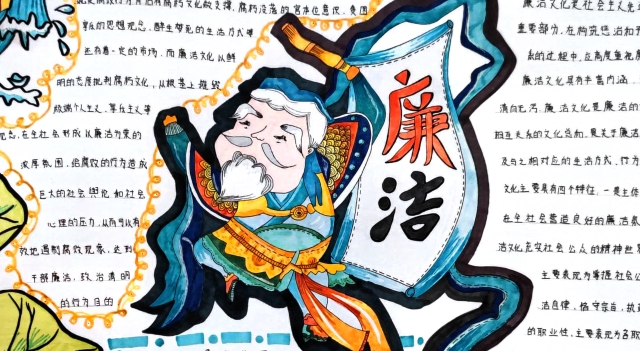 败的思想观念、醉生梦死的生活方式等
还有着一定的市场。而廉洁文化以鲜
明的态度批判腐朽文化,从根基上摧毁
极端个人主义、享乐主义等
观念,在全社会形成以廉为荣的
浓厚氛围,给腐败的行为造成
巨大的社会舆论和社会
心理的压力,从而可以有
效地遏制腐败现象,达到
干部廉洁,政治清明
的行为目的
廉洁
廉洁文化是社会主义先
重要部分,在构筑
的过程中,应高度重视
廉洁文化具有丰富内涵
清白无污。廉洁文化是廉洁的
相互关系的文化总和,是关于廉洁
及与之相对应的生活方式、行为
文化主要具有四个特征,一是主体
在全社会营造良好的廉洁氛
洁文化充实社会公众的精神世
主要表现为掌握社会
洁自律,恪守宗旨,执
的职业性,主要表现为各